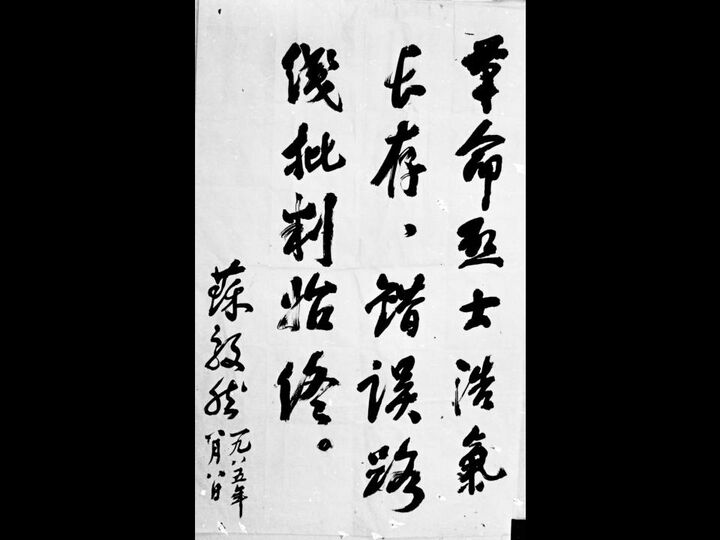 革命烈士浩氣
长存、错误路
綫批判始终。
蘇毅然
一九八五年
八月八日